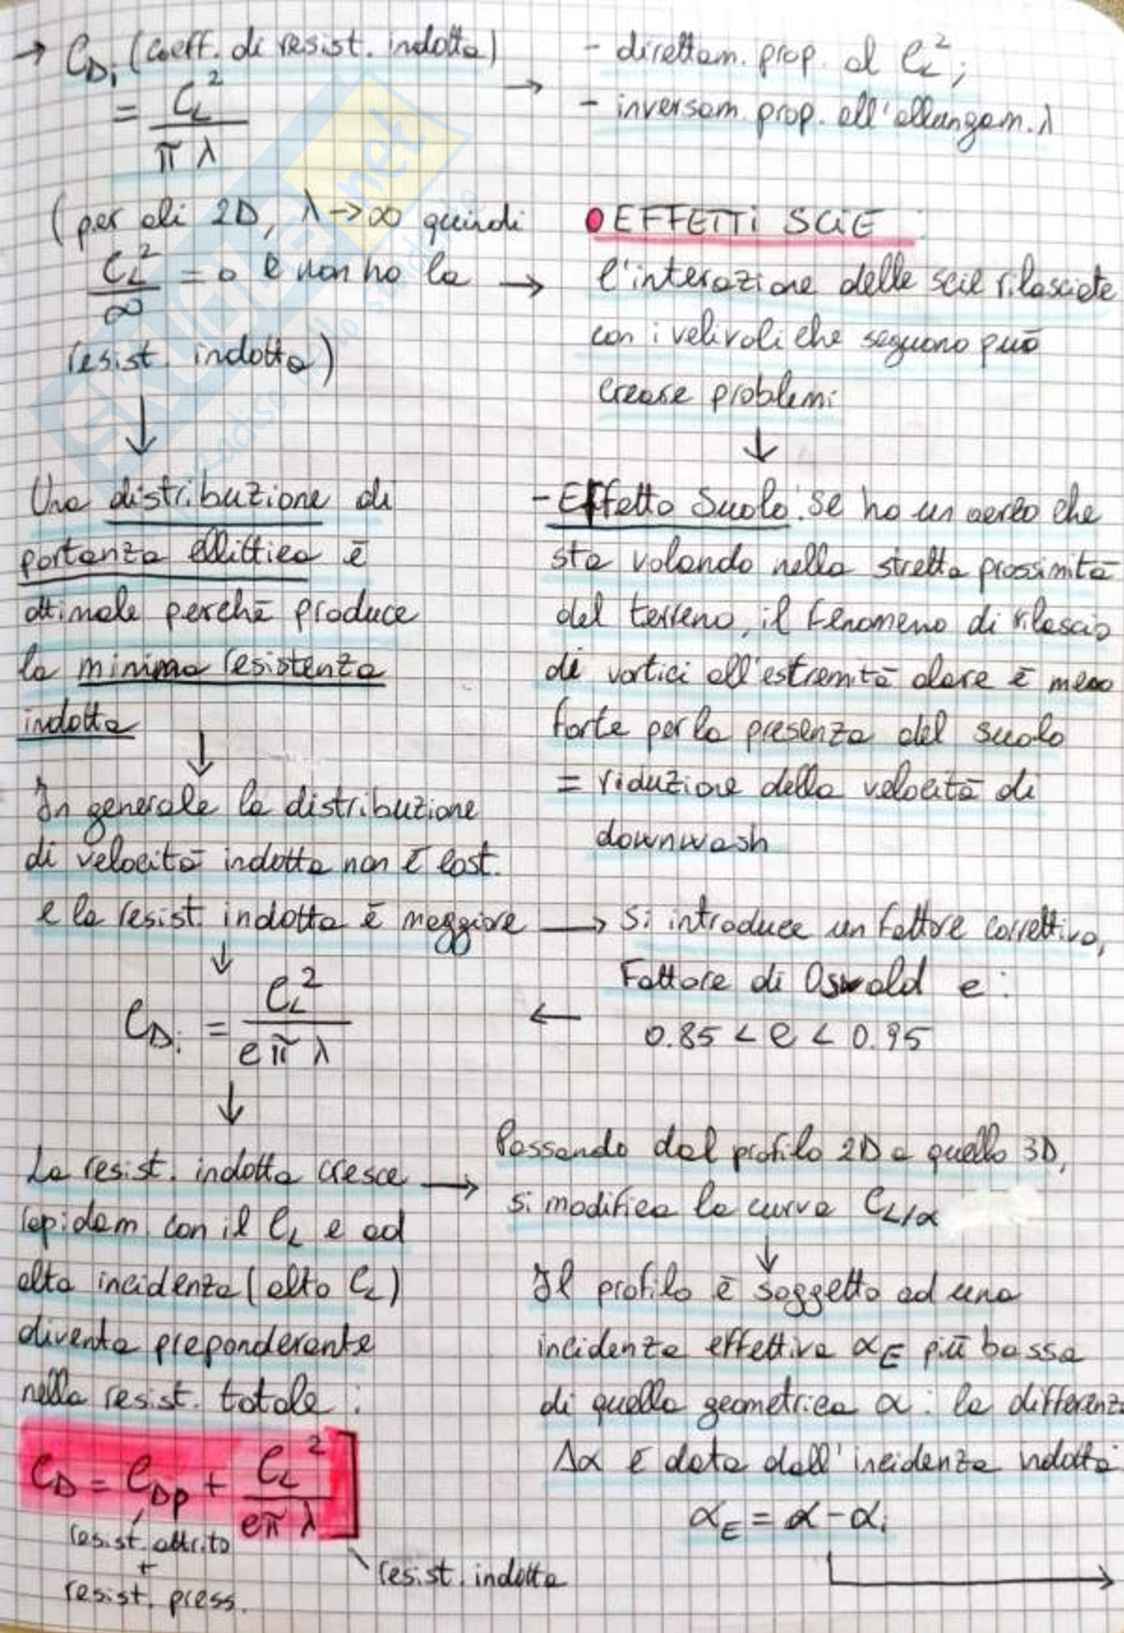 → C_Di (coeff. di resist. indotta)
= C_L² / π λ
→ - direttam. prop. al C_L²;
- inversam. prop. all'allungam. λ
(per ali 2D, λ→∞ quindi
C_L² / ∞ = 0 e non ho la →
resist. indotta)
↓
Una distribuzione di
portanza ellittica è
ottimale perchè produce
la minima resistenza
indotta
↓
In generale la distribuzione
di velocità indotta non è cost.
e la resist. indotta è maggiore →
↓
C_Di = C_L² / e π λ
↓
La resist. indotta cresce →
rapidam. con il C_L e ad
alta incidenza (alto C_L)
diventa preponderante
nella resist. totale:
C_D = C_Dp + C_L² / e π λ
resist. attrito
+
resist. press.
resist. indotta
EFFETTI SCIE:
l'interazione delle scie rilasciate
con i velivoli che seguono può
creare problemi
↓
- Effetto Suolo: se ho un aereo che
sta volando nella stretta prossimità
del terreno, il fenomeno di rilascio
di vortici all'estremità alare è meno
forte per la presenza del suolo
= riduzione della velocità di
downwash
si introduce un fattore correttivo,
Fattore di Oswald e:
← 0.85 < e < 0.95
Passando dal profilo 2D a quello 3D,
si modifica la curva C_L/α
↓
Il profilo è soggetto ad una
incidenza effettiva α_E più bassa
di quella geometrica α: la differenz
Δα è data dall'incidenza indotta
α_E = α - αi
→
skuola.net